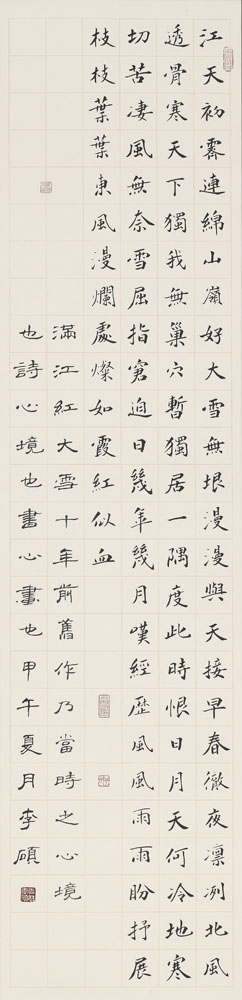 江天初霽連綿山嶺好大雪無垠漫漫與天接早春徹夜凛冽北風
透骨寒天下獨我無巢穴暫獨居一隅度此時恨日月天何冷地寒
切苦凄風無奈雪屈指窘迫日幾年幾月嘆經歷風風雨雨盼抒展
枝枝葉葉東風漫爛處燦如霞紅似血
滿江紅大雪十年前舊作乃當時之心境
也詩心境也書心畫也甲午夏月李碩